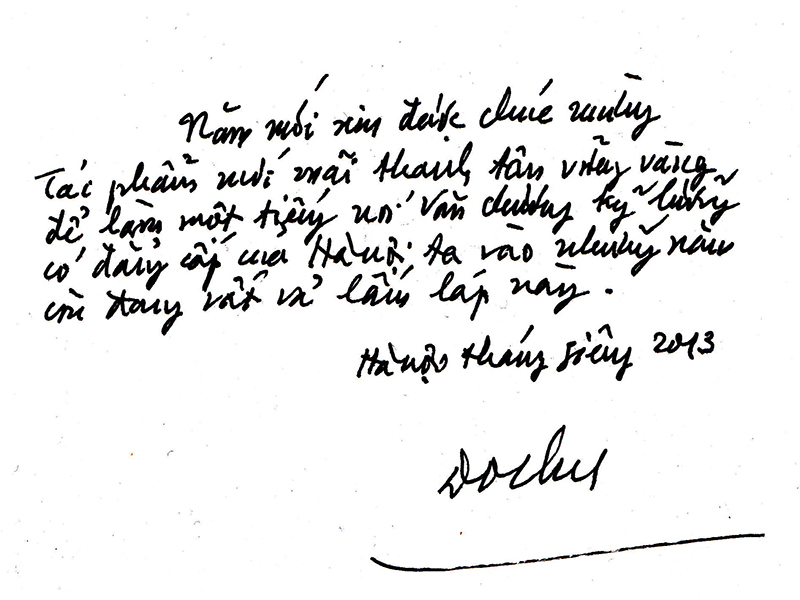 Năm mới xin được chúc mừng
Tác phẩm mới mãi thanh tân vững vàng
để làm một tiếng nói văn chương kỹ lưỡng
có đẳng cấp của Hà Nội ta vào những năm
còn đang vất vả lấm láp này.
Hà Nội tháng Giêng 2013